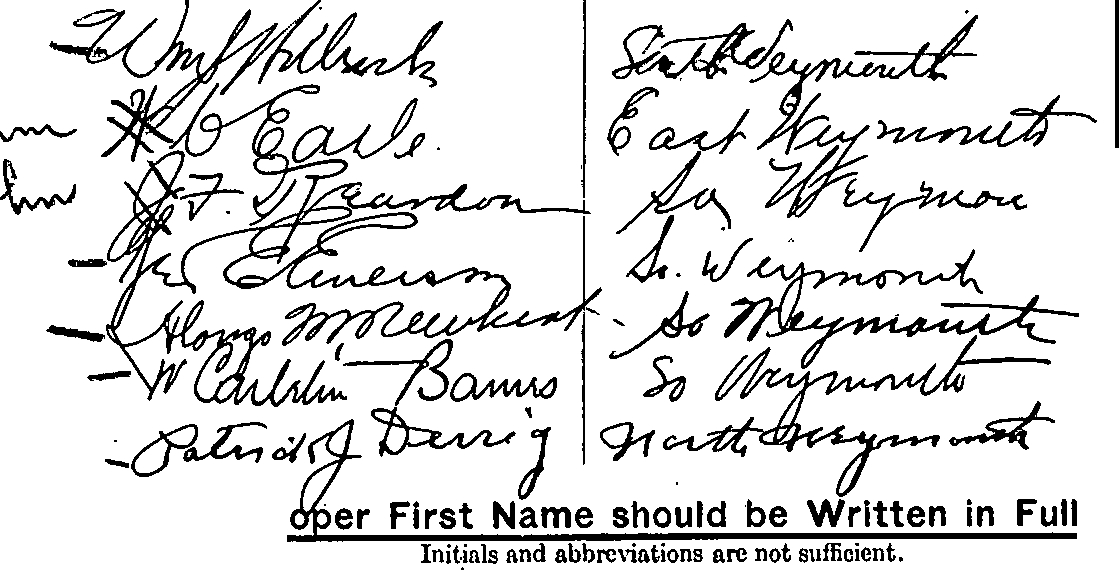 Wm J Holbrook South Weymouth
E Earle East Weymouth
J. F. Reardon So Weymou
Geo Emerson So. Weymouth
Alonzo M Newbert So Weymouth
W Carleton Barnes So Weymouth
Patrick J Derrig North Weymouth
oper First Name should be Written in Full
Initials and abbreviations are not sufficient.